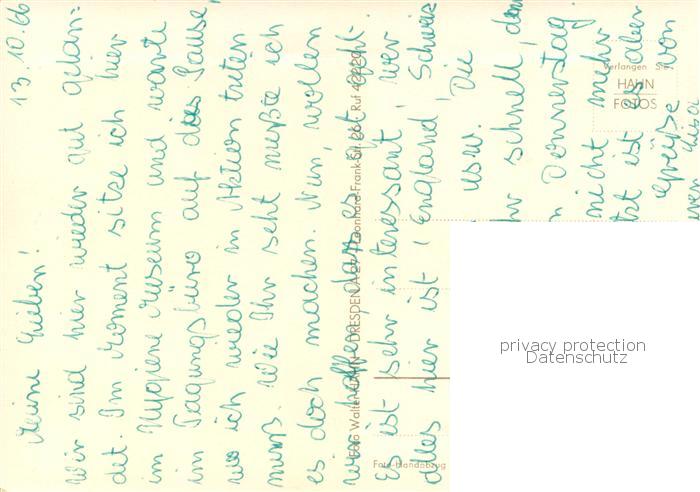 13.10.66
Meine Lieben!
Wir sind hier wieder gut gelan-
det. Im Moment sitze ich hier
im Hygiene Museum und warte
im Tagungsbüro auf die Pause,
wo ich wieder in Aktion treten
muß. Wie Ihr seht mußte ich
es doch machen. Nun, wollen
wir hoffen, dass es gut geht.
Es ist sehr interessant wer
alles hier ist, England, Schweiz
usw. Die
schnell, denn
Donnerstag
nicht mehr
ist es aber
Grüße von
Verlangen Sie
HAHN
FOTOS
Foto Walter HAHN DRESDEN A 27, Leonhard-Frank-Str. Ruf
Foto-Handabzug
privacy protection
Datenschutz